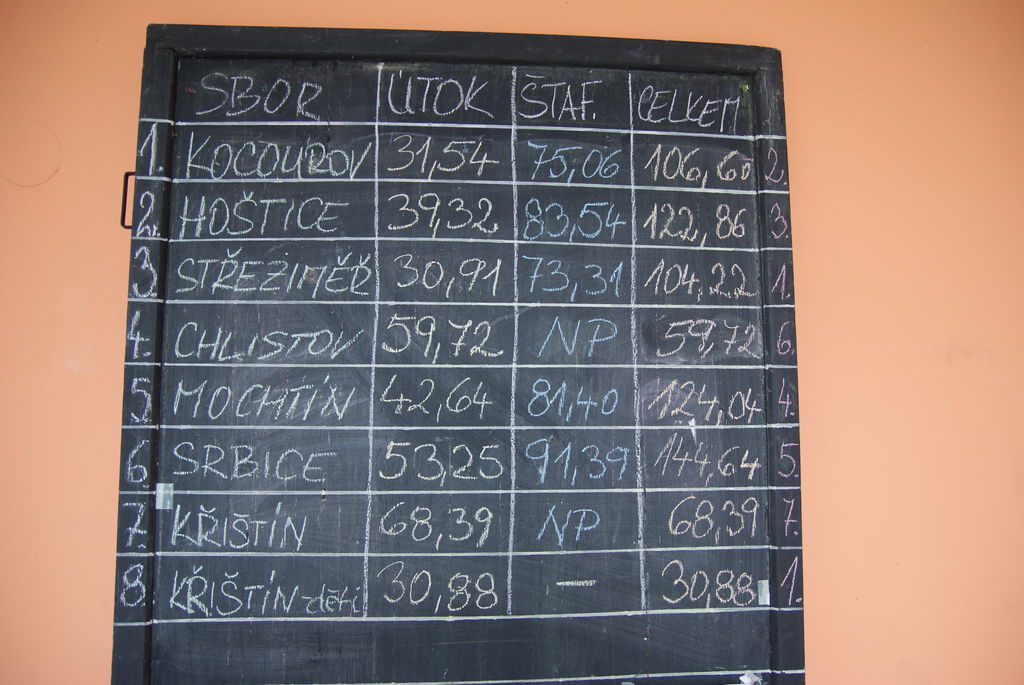 SBOR ÚTOK ŠTAF. CELKEM
1. KOCOUROV 31,54 75,06 106,60 2.
2. HOŠTICE 39,32 83,54 122,86 3.
3. STŘEZIMĚŘ 30,91 73,31 104,22 1.
4. CHLISTOV 59,72 NP 59,72 6.
5 MOCHTÍN 42,64 81,40 124,04 4.
6. SRBICE 53,25 91,39 144,64 5.
7. KŘIŠTÍN 68,39 NP 68,39 7.
8 KŘIŠTÍN-děti 30,88 — 30,88 1.